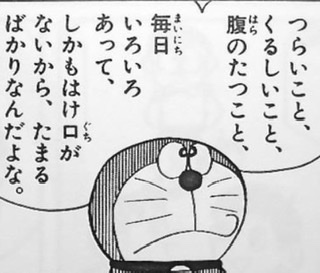 つらいこと、
くるしいこと、
腹のたつこと、
毎日
いろいろ
あって、
しかもはけ口が
ないから、たまる
ばかりなんだよな。